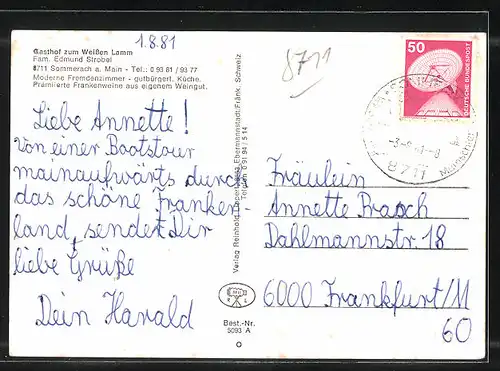 1.8.81
Gasthof zum Weißen Lamm
Fam. Edmund Strobel
8711 Sommerach a. Main - Tel.: 0 93 81 / 93 77
Moderne Fremdenzimmer - gutbürgerl. Küche.
Prämiierte Frankenweine aus eigenem Weingut.
Liebe Annette!
Von einer Bootstour
mainaufwärts durch
das schöne Franken-
land, sendet Dir
liebe Grüße
Dein Harald
Verlag Reinhold Ebermannstadt/Fränk. Schweiz
Telefon 0 91 94 / 5 14
R L
Best.-Nr.
5093 A
8711
50
DEUTSCHE BUNDESPOST
8711
Fräulein
Annette Prasch
Dahlmannstr. 18
6000 Frankfurt/M
60